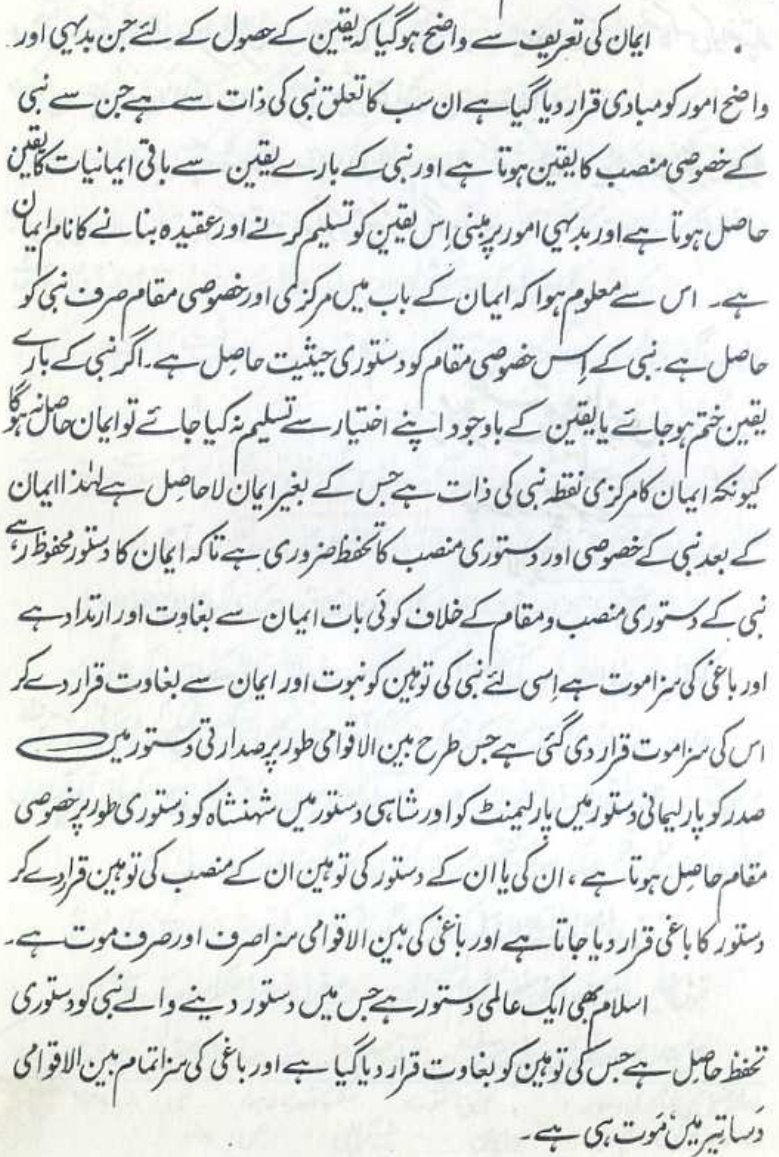 ایمان کی تعریف سے واضح ہوگیا کہ یقین کے حصول کے لئے جن بدیہی اور
واضح امور کو مبادی قرار دیا گیا ہے ان سب کا تعلق نبی کی ذات سے ہے جن سے نبی
کے خصوصی منصب کا یقین ہوتا ہے اور نبی کے بارے یقین سے باقی ایمانیات کا یقین
حاصل ہوتا ہے اور بدیہی امور پر مبنی اِس یقین کو تسلیم کرنے اور عقیدہ بنانے کا نام ایمان
ہے۔ اس سے معلوم ہوا کہ ایمان کے باب میں مرکزی اور خصوصی مقام صرف نبی کو
حاصل ہے۔ نبی کے اِس خصوصی مقام کو دستوری حیثیت حاصل ہے۔ اگر نبی کے بارے
یقین ختم ہو جائے یا یقین کے باوجود اپنے اختیار سے تسلیم نہ کیا جائے تو ایمان حاصل نہ ہوگا
کیونکہ ایمان کا مرکزی نقطہ نبی کی ذات ہے جس کے بغیر ایمان لاحاصل ہے لہٰذا ایمان
کے بعد نبی کے خصوصی اور دستوری منصب کا تحفظ ضروری ہے تاکہ ایمان کا دستور محفوظ رہے
نبی کے دستوری منصب و مقام کے خلاف کوئی بات ایمان سے بغاوت اور ارتداد ہے
اور باغی کی سزا موت ہے اِسی لئے نبی کی توہین کو نبوت اور ایمان سے بغاوت قرار دے کر
اس کی سزا موت قرار دی گئی ہے جس طرح بین الاقوامی طور پر صدارتی دستور میں
صدر کو پارلیمانی دستور میں پارلیمنٹ کو اور شاہی دستور میں شہنشاہ کو دستوری طور پر خصوصی
مقام حاصل ہوتا ہے، ان کی یا ان کے دستور کی توہین ان کے منصب کی توہین قرار دے کر
دستور کا باغی قرار دیا جاتا ہے اور باغی کی بین الاقوامی سزا صرف اور صرف موت ہے۔
اسلام بھی ایک عالمی دستور ہے جس میں دستور دینے والے نبی کو دستوری
تحفظ حاصل ہے جس کی توہین کو بغاوت قرار دیا گیا ہے اور باغی کی سزا تمام بین الاقوامی
دَساتیر میں مَوت ہی ہے۔